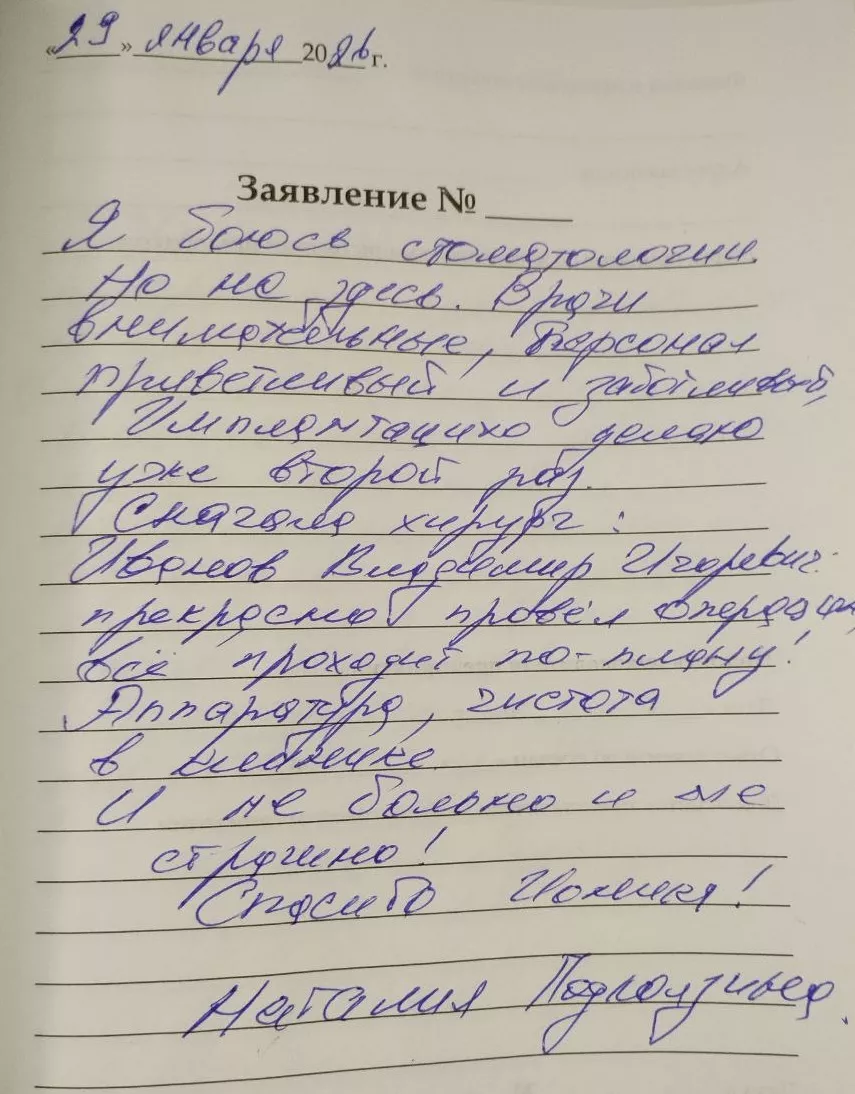 «29» января 2026 г.
Заявление № ____
Я боюсь стоматологии.
Но не здесь. Врачи
внимательные, персонал
приветливый и заботливый,
Имплантацию делаю
уже второй раз.
Сначала хирург:
Иванов Владимир Игоревич
прекрасно провёл операцию,
всё проходит по-плану!
Аппаратура, чистота
в клинике.
И не больно и не
страшно!
Спасибо
Наталия